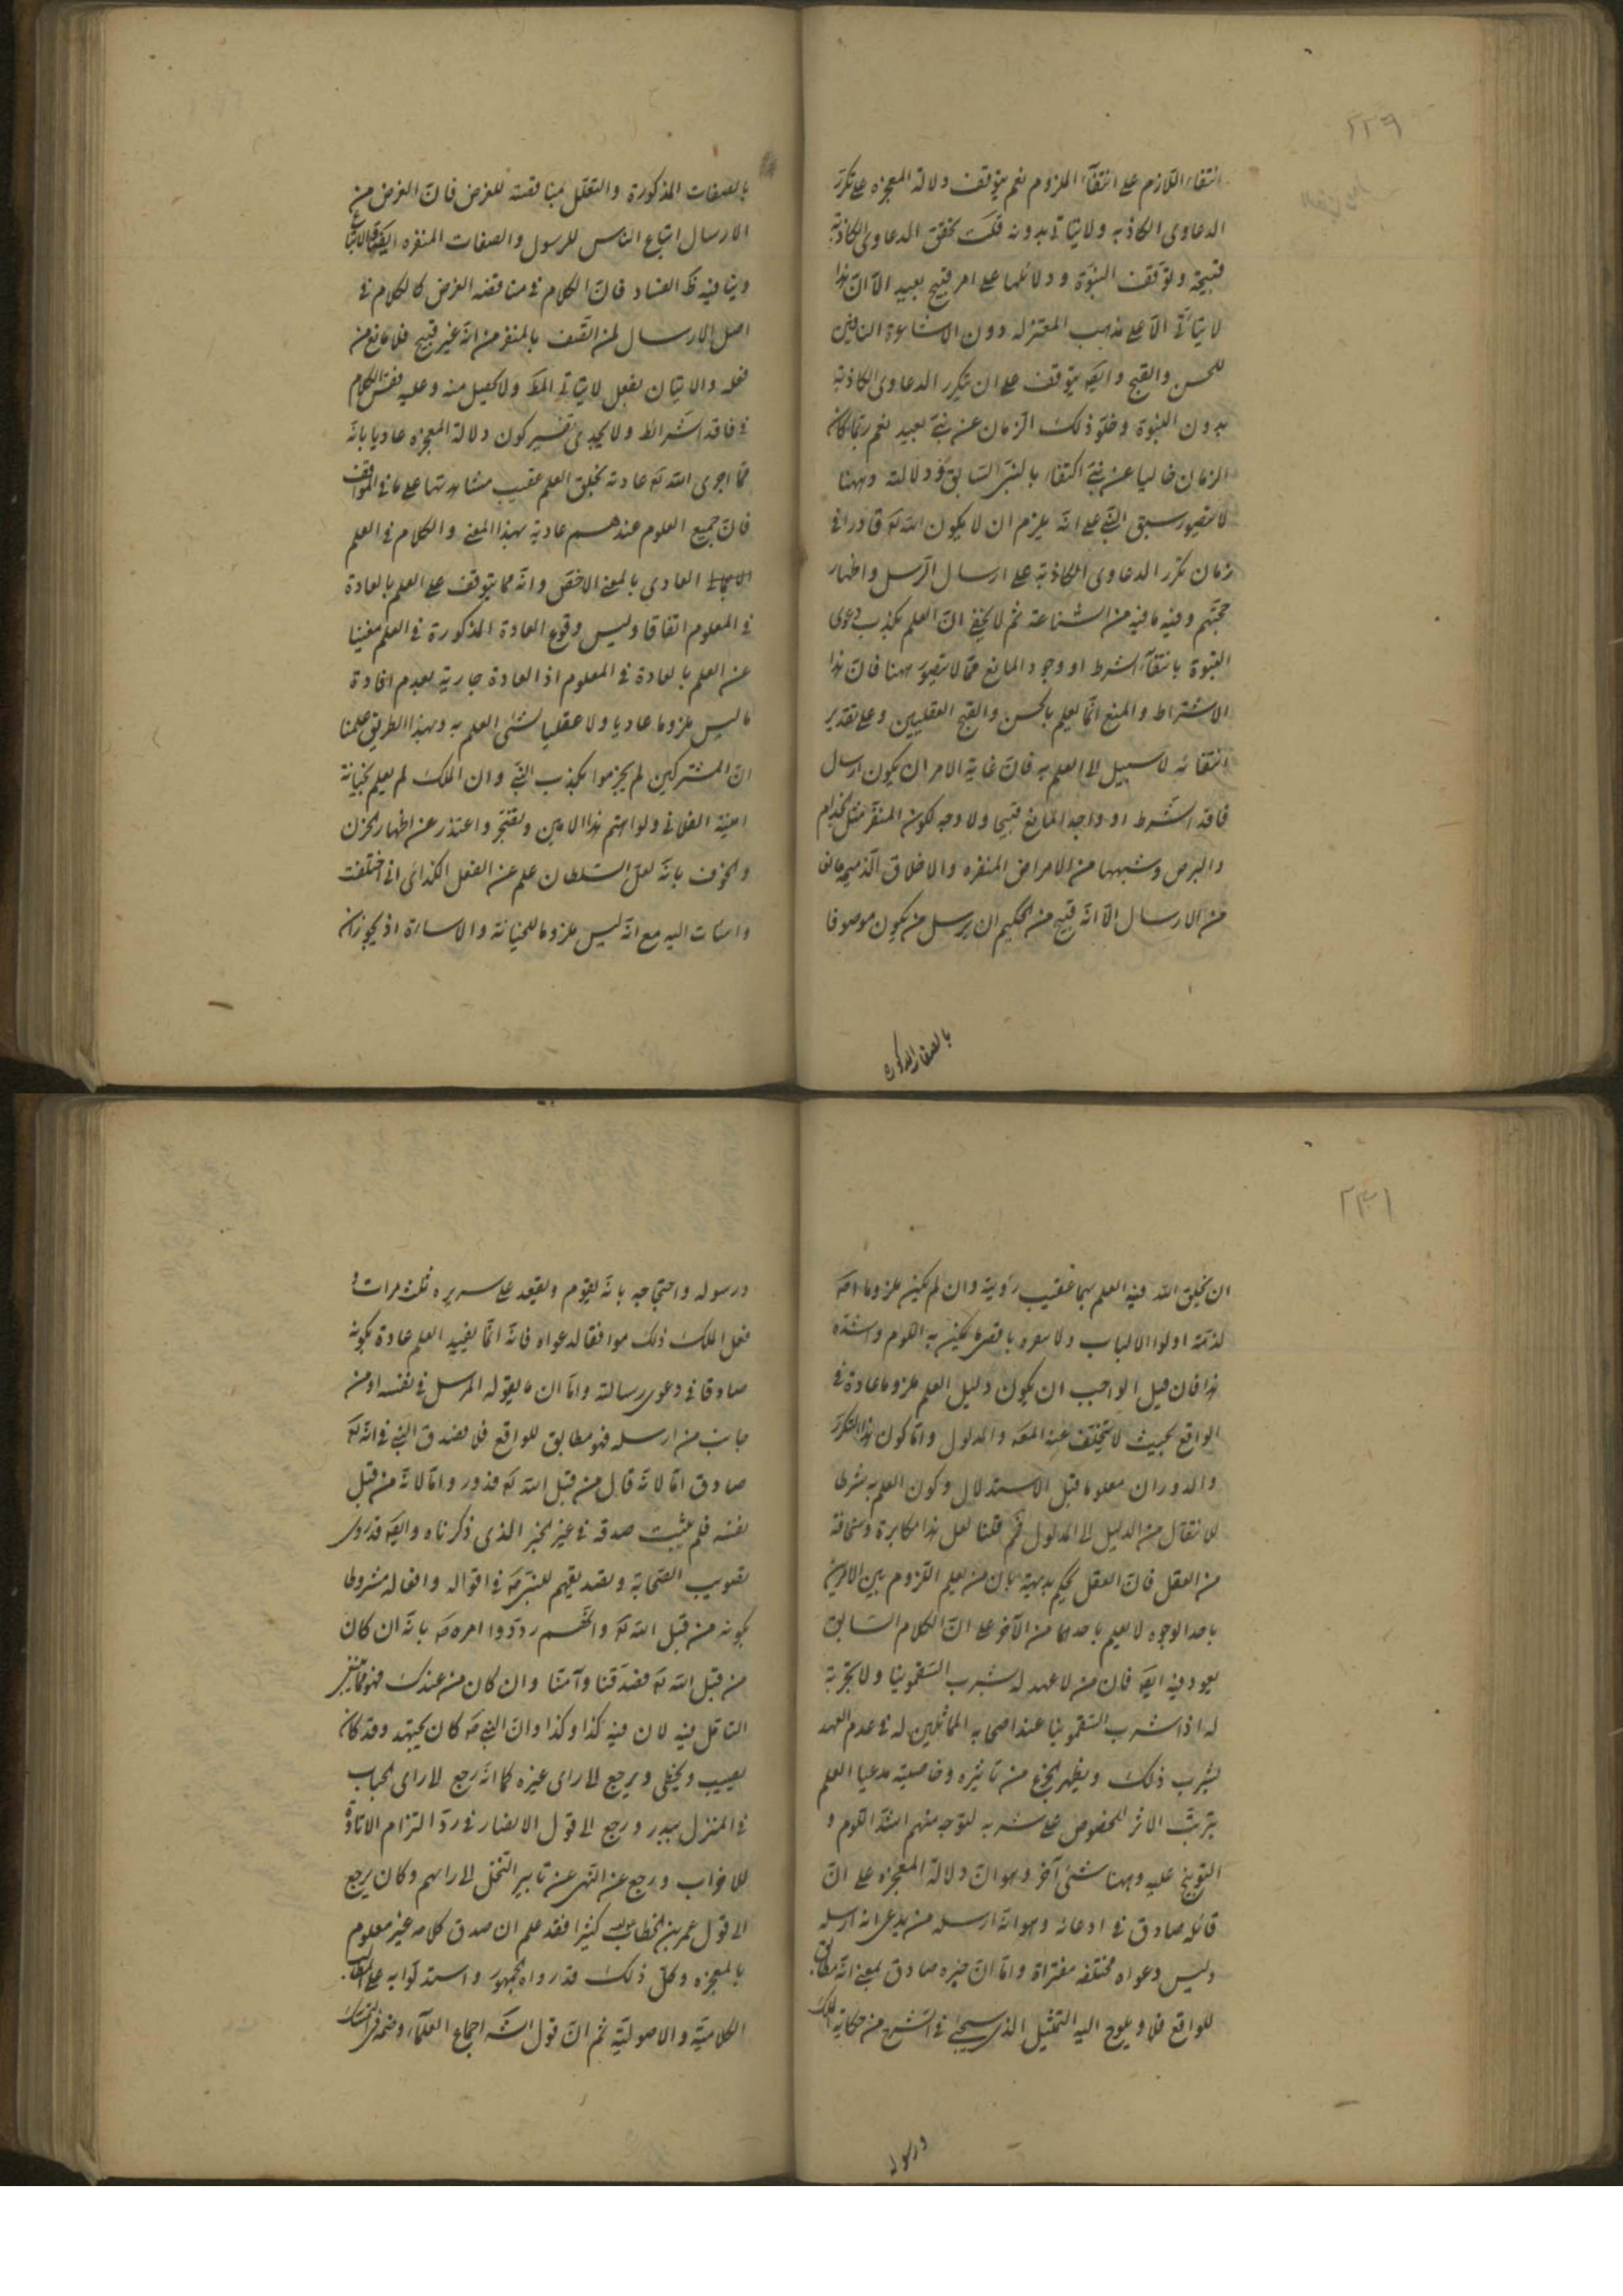 ٢٣٩
انتفاء اللازم على انتفآء الملزوم نعم يتوقف دلالة المعجزه على تكرر
الدعاوى الكاذبه ولا يتاتى بدونه قلت تحقق الدعاوى الكاذبة
قبيحة وتوقف النبوة ودلائلها على امر قبيح بعيد الا ان هذا
لا يتأتى الا على مذهب المعتزله دون الاشاعرة النافين
للحسن والقبح وايضه يتوقف على ان يتكرر الدعاوى الكاذبة
بدون النبوة وخلو ذلك الزمان عن نبى بعيد نعم ربما كان
الزمان خاليا عن نبى اكتفاء بالنبى السابق ودلالته وههنا
لا يتصور سبق النبى على انه يلزم ان لا يكون الله تع قادرا فى
زمان تكرر الدعاوى الكاذبة على ارسال الرسل واظهار
حجتهم وفيه ما فيه من الشناعة ثم لا يخفى ان العلم بكذب دعوى
النبوة بانتفآء الشرط او وجود المانع مما لا يتصور ههنا فان هذا
الاشتراط والمنع انما يعلم بالحسن والقبح العقليين وعلى تقدير
انتفائه لا سبيل الى العلم به فان غاية الامر ان يكون ارسال
فاقد الشرط او واجد المانع قبيحا ولا وجه لكون المنفر مثل الجذام
والبرص وشبهها من الامراض المنفره والاخلاق الذميمه مانعا
من الارسال الا انه قبيح من الحكيم ان يرسل من يكون موصوفا
بالصفات المذكورة
بالصفات المذكورة والتعلل بمناقضته للغرض فان الغرض من
الارسال اتباع الناس للرسول والصفات المنفره
وينافيه ظ الفساد فان الكلام فى مناقضه الغرض كالكلام فى
اصل الارسال لمن اتصف بالمنفر من انه غير قبيح فلا مانع من
فعله والاتيان بفعل لا يتاتى المط ولا يحصل منه وعليه فقس الكلام
فى فاقد الشرائط ولا يجدى تفسير كون دلالة المعجزه عاديا بانه
مما اجرى الله تع عادته بخلق العلم عقيب مشاهدتها على ما فى المواقف
فان جميع العلوم عندهم عادية بهذا المعنى والكلام فى العلم
العادى بالمعنى الاخص وانه مما يتوقف على العلم بالعادة
فى المعلوم اتفاقا وليس وقوع العادة المذكورة فى العلم مغنيا
عن العلم بالعادة فى المعلوم اذ العادة جارية بعدم افادة
ما ليس ملزوما عاديا ولا عقليا لشئ العلم به وبهذا الطريق علمنا
ان المشركين لم يجزموا بكذب النبى وان الملك لم يعلم بخيانة
امينه الفلانى ولو اتهم هذا الامين وتضجر واعتذر عن اظهار الحزن
والخوف بانه لعل السلطان علم عن الفعل الكذائى انى اختلفت
واسات اليه مع انه ليس ملزوما للخيانة والاساءة اذ يجوز ان
٢٤١
ان يخلق الله فيه العلم بهما عقيب رؤية وان لم يكن ملزوما
لذمه اولوا الالباب
هذا فان قيل الواجب ان يكون دليل العلم ملزوما عادة فى
الواقع بحيث لا يتخلف عنه المعه والمدلول واما كون هذا التكرر
والدوران معلوما قبل الاستدلال وكون العلم به شرطا
للانتقال من الدليل الى المدلول فمم قلنا لعل هذا مكابرة وسخافة
من العقل فان العقل يحكم بديهية بان من لم يعلم اللزوم بين الامرين
باحد الوجوه لا يعلم باحدهما من الآخر على ان الكلام السابق
يعود فيه ايضه فان من لا عهد له بشرب السقمونيا ولا تجربة
له اذا شرب السقمونيا عند اصحابه المماثلين له فى عدم العهد
بشرب ذلك ويظهر الجزع من تاثيره وخاصيته مدعيا العلم
بترتب الاثر المخصوص على شربه لتوجه منهم اشد اللوم و
التوبيخ عليه وههنا شئ آخر وهو ان دلالة المعجزه على ان
قائله صادق فى ادعائه وهو انه ارسله من يدعى انه ارسله
وليس دعواه مختلفه مفتراة واما ان خبره صادق بمعنى انه مطابق
للواقع فلا ويلوح اليه التمثيل الذى سيجئ فى الشرح من حكاية الملك
ورسوله
ورسوله واحتجاجه بانه يقوم ويقعد على سريره ثلث مرات و
فعل الملك ذلك موافقا لدعواه فانه انما يفيد العلم عادة بكونه
صادقا فى دعوى رسالته واما ان ما يقوله المرسل فى نفسه او من
جانب من ارسله فهو مطابق للواقع فلا فصدق النبى فى انه تع
صادق اما لانه قال من قبل الله تع فذور واما لانه من قبل
نفسه فلم يثبت صدقه فى غير الخبر الذى ذكرناه وايضه قد روى
تصويب الصحابة وتصديقهم للنبى ص فى اقواله وافعاله مشروطا
بكونه من قبل الله تع وانهم رددوا امره ص بانه ان كان
من قبل الله تع فصدقنا وآمنا وان كان من عندك فهو مما ينبغى
التامل فيه لان فيه كذا وكذا وان النبى ص كان يجتهد وقد كان
يصيب ويخطى ويرجع الى راى غيره كما انه رجع الى راى الحباب
فى المنزل ببدر ورجع الى قول الانصار فى رد التزام الاتاوة
للاحزاب ورجع عن النهى عن تابير النخل الى رايهم وكان يرجع
الى قول عمر بن الخطاب كثيرا فقد علم ان صدق كلامه غير معلوم
بالمعجزه وكل ذلك قد رواه الجمهور واستدلوا به على المطالب
الكلامية والاصولية ثم ان قول الشه اجماع العلمآء